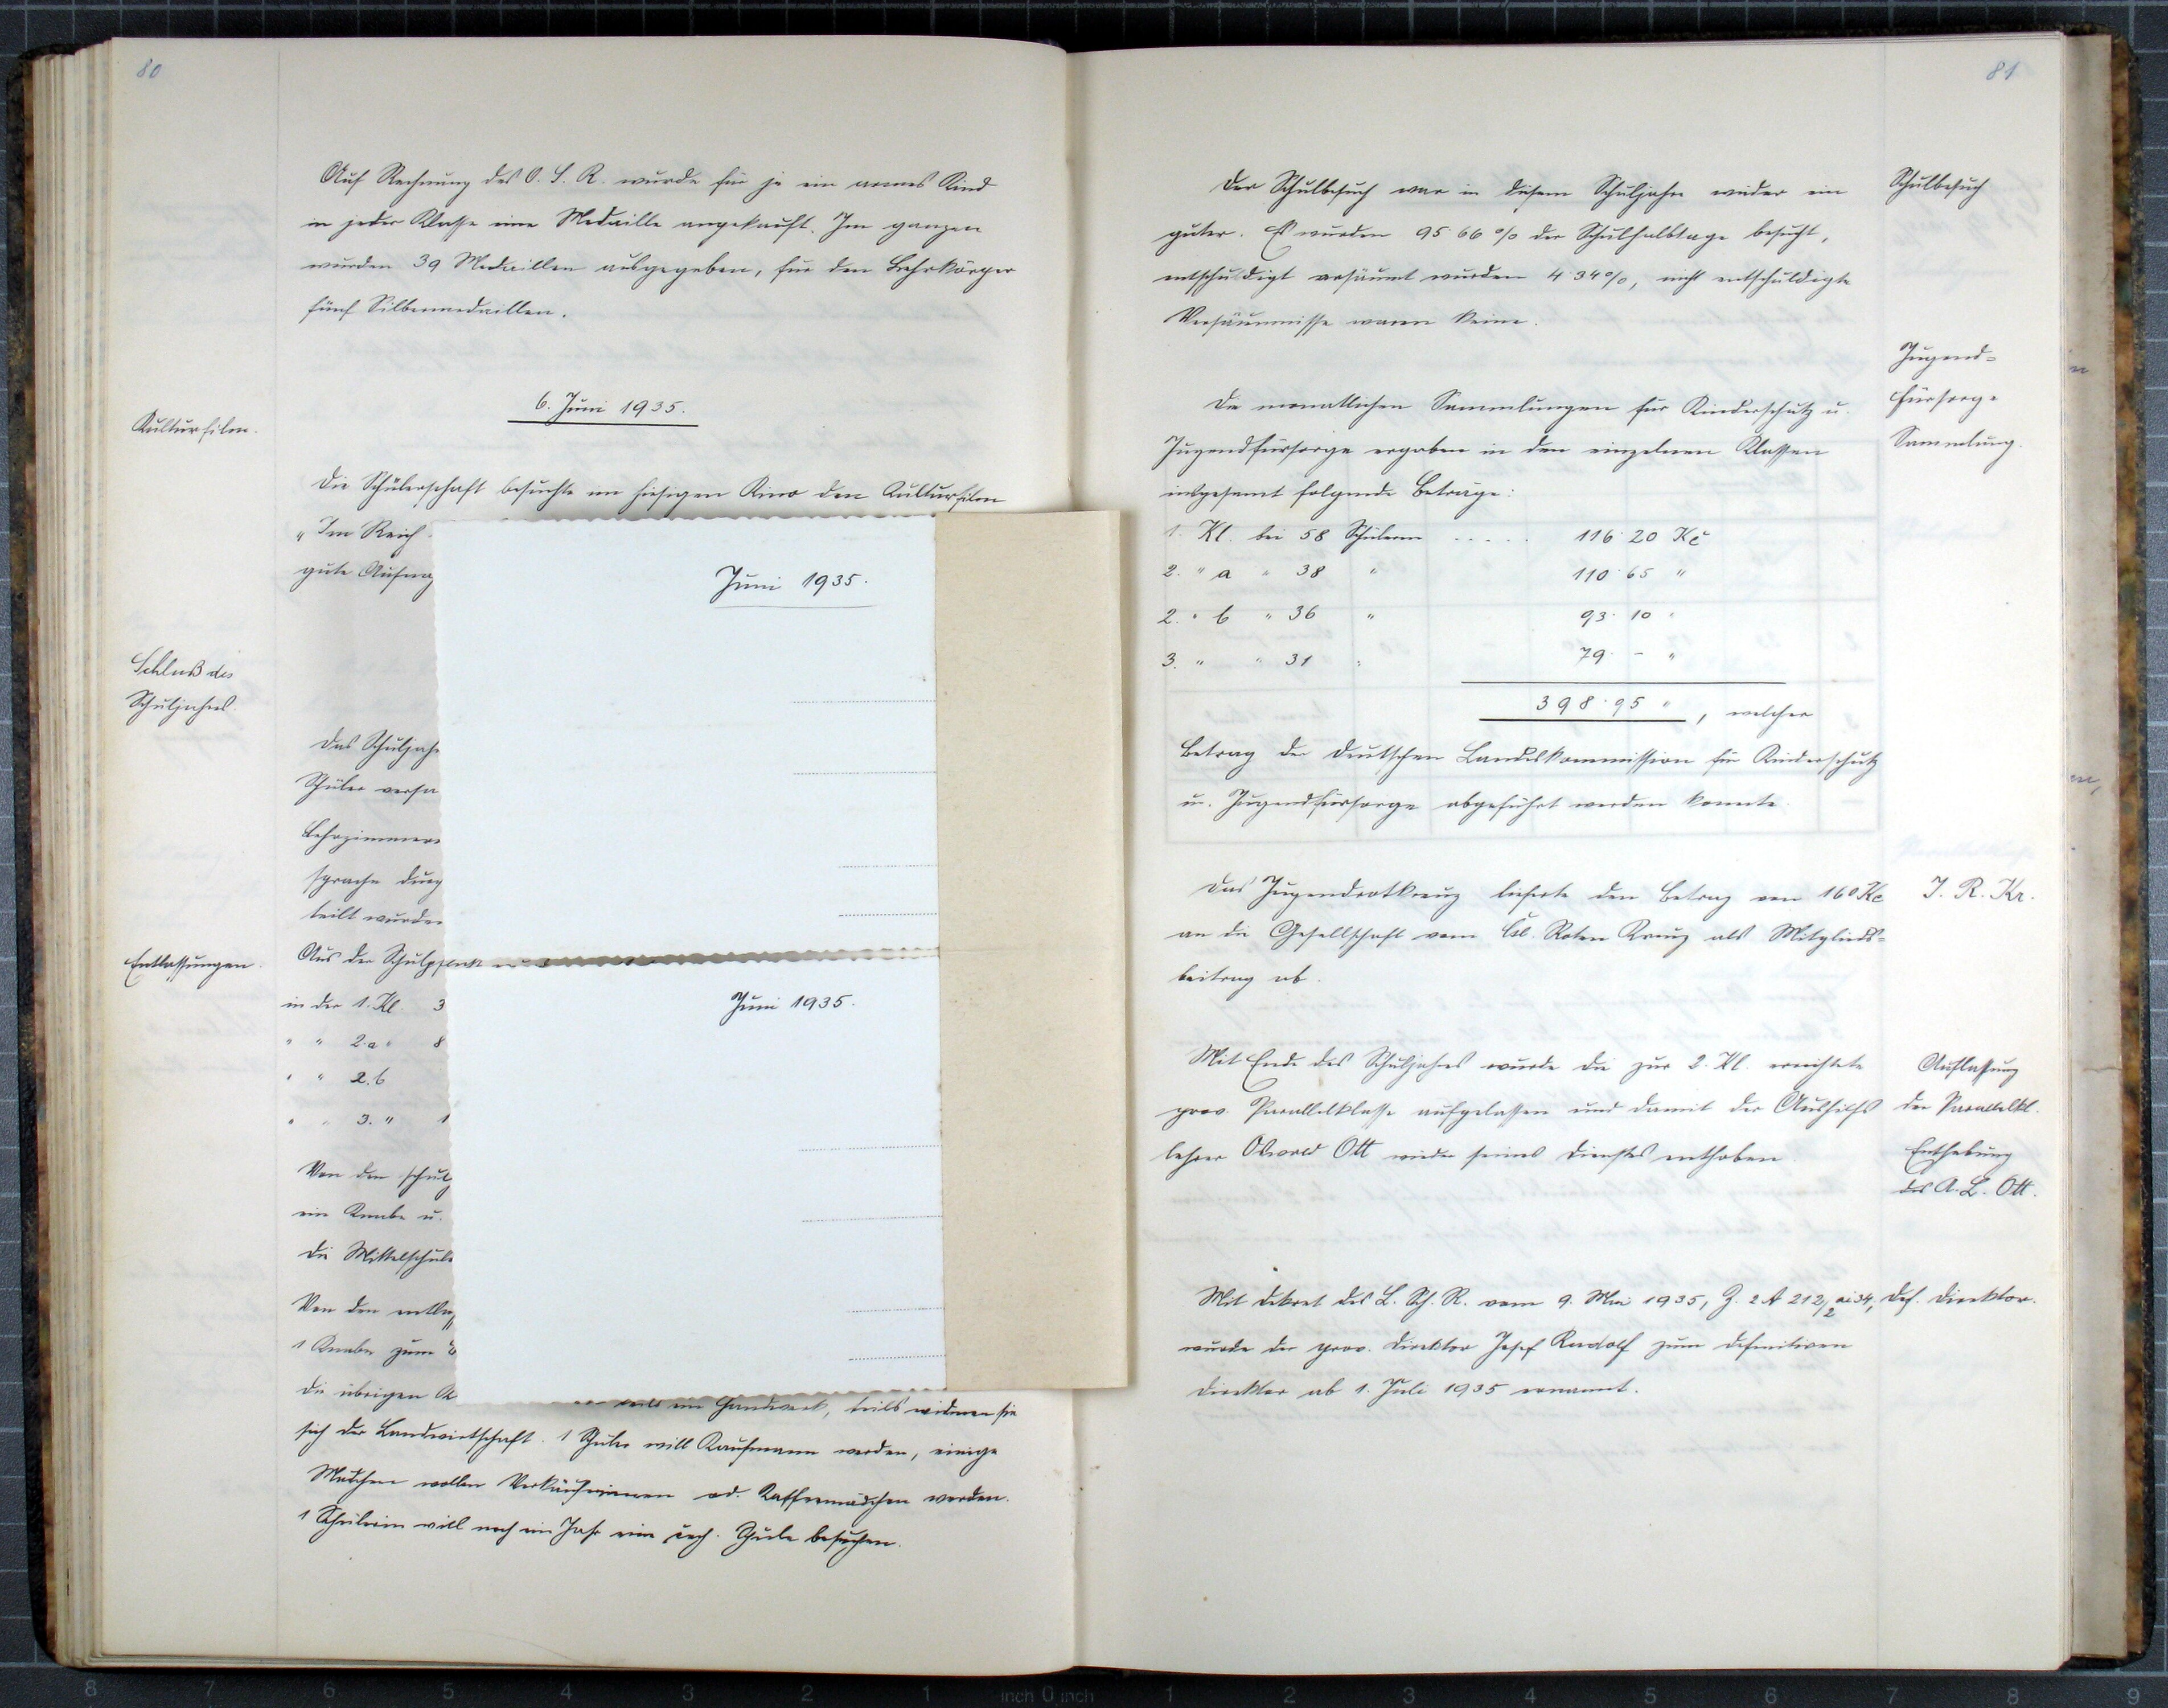 80
Auf Rechnung des O. S. R. wurde für je ein armes Kind
in jeder Klasse eine Medaille angekauft. Im ganzen
wurden 39 Medaillen ausgegeben, für den Lehrkörper
fünf Silbermedaillen.
6. Juni 1935.
Kulturfilm.
Die Schülerschaft besuchte im hiesigen Kino den Kulturfilm
"Im Reich
gute Aufna
Schluß des
Schuljahres.
Das Schuljahr
Schüler versa
Lehrzimmer
sprache durch
teilt wurde
Entlassungen.
Aus der Schulpflicht
in der 1. Kl. 3
" " 2. a " 8
" " 2. b
" " 3. " 1
Von den schulp
ein Knabe u.
die Mittelschule
Von den entla
1 Knabe zum
die übrigen K
teils ein Handwerk, teils widmen sie
sich der Landwirtschaft. 1 Schüler will Kaufmann werden, einige
Mädchen wollen Verkäuferinnen od. Kassermädchen werden.
1 Schülerin will noch ein Jahr eine čech. Schule besuchen.
Juni 1935.
Juni 1935.
81
Der Schulbesuch war in diesem Schuljahre wieder ein
guter. Es wurden 95·66 % der Schulhalbtage besucht,
entschuldigt versäumt wurden 4·34 %, nicht entschuldigte
Versäumnisse waren keine.
Schulbesuch
Jugend=
fürsorge
Sammlung.
Die monatlichen Sammlungen für Kinderschutz u.
Jugendfürsorge ergaben in den einzelnen Klassen
insgesamt folgende Beträge:
1. Kl. bei 58 Schülern ..... 116·20 Kč
2. " a " 38 " 110·65 "
2. " b " 36 " 93·10 "
3. " " 31 " 79·– "
398·95 ", welcher
Betrag der deutschen Landeskommission für Kinderschutz
u. Jugendfürsorge abgeführt werden konnte.
Das Jugendrotkreuz lieferte den Betrag von 160 Kč
an die Gesellschaft vom čsl. Roten Kreuz als Mitglieds=
beitrag ab.
J. R. Kr.
Mit Ende des Schuljahres wurde die zur 2. Kl. errichtete
prov. Parallelklasse aufgelassen und damit der Aushilfs
lehrer Oswald Ott wieder seines Dienstes enthoben.
Auflassung
der Parallelkl.
Enthebung
des A. L. Ott.
Mit Dekret des L. Sch. R. vom 9. Mai 1935, Z. 2 A 212/2 ai 34,
wurde der prov. Direktor Josef Rudolf zum definitiven
Direktor ab 1. Juli 1935 ernannt.
Def. Direktor.